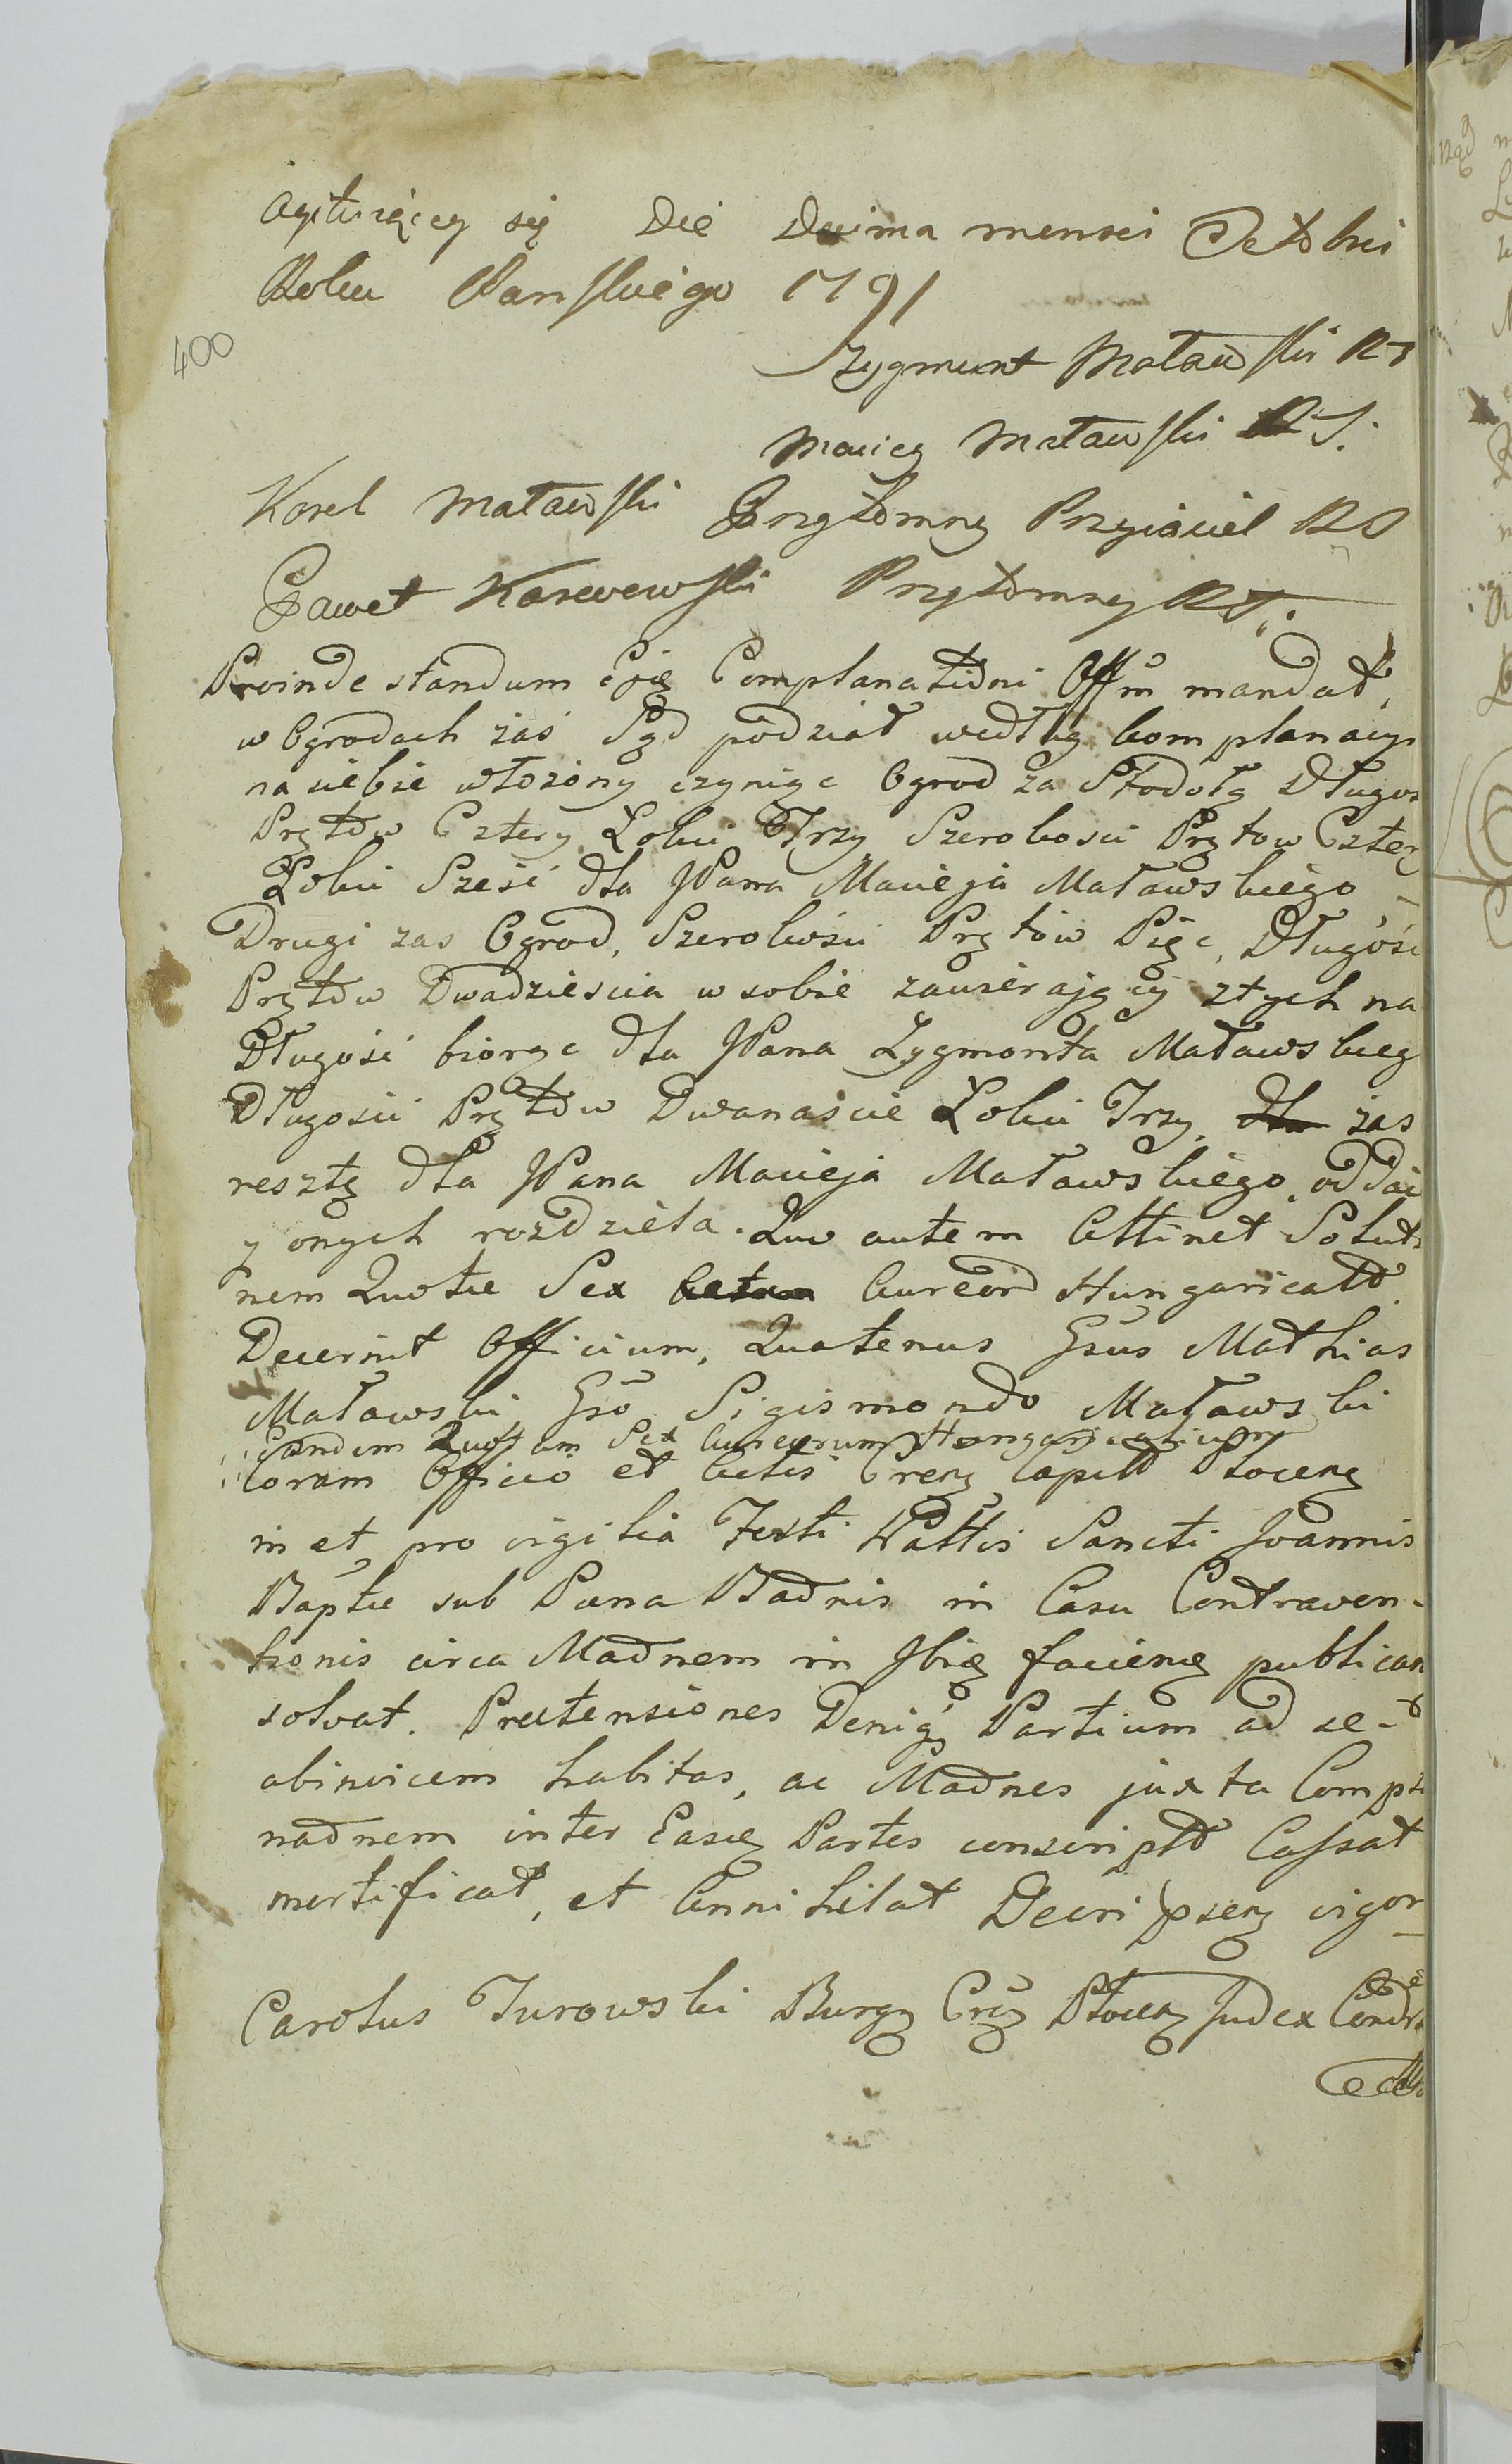 agituiącey się Die Decima mensei Octobris
Roku Panskiego 1791
400
Zygmunt Małowski
Maciey Małowski
Karol Małowski Przytomny Przyiaciel
Paweł Przytomny
Proinde standum Complanationi Offm mandat,
w Ogrodach zaś Sąd podział według komplanacyi
na siebie włożony czyniąc Ogrod za Stodołą Długos
Prętow Cztery Łokci Trzy Szerokosci Prętow Cztery
Łokci Sześć dla JPana Macieja Małowskiego
Drugi zas Ogrod, Szerokości Prętów Pięc, Długośc
Prętow Dwadziescia w sobie zawierający z tych na
Długośc biorąc dla JPana Zygmonta Małowskieg
Długości Prętow Dwanaście Łokci Trzy, dla zas
resztę dla JPana Macieja Małowskiego oddaie
y onych rozdziela. Quo autem Attinet Soluti
nem Quotae Sex Aureor Hungaricall
Decernit Officium, Quatenus Gsus Mathias
Małowski Gso Sigismondo Małowski
Eandem Quotam Sex Aureorum Hungaricalium
Coram Officio et Actis Capitt Plocen
in et pro vigilia Festi Sancti Joannis
Baptae sub Paena in Casu Contraven-
tionis circa in faciene publican
solvat. Praetensiones Deniq Partium ad se-
abinvicem habitas, ac juxta Compla
nadnem inter Easq Partes conscriptt Cassat
mortificat, et Annihilat Decri pserz vigor
Carolus Turowski Burg Plocen Judex